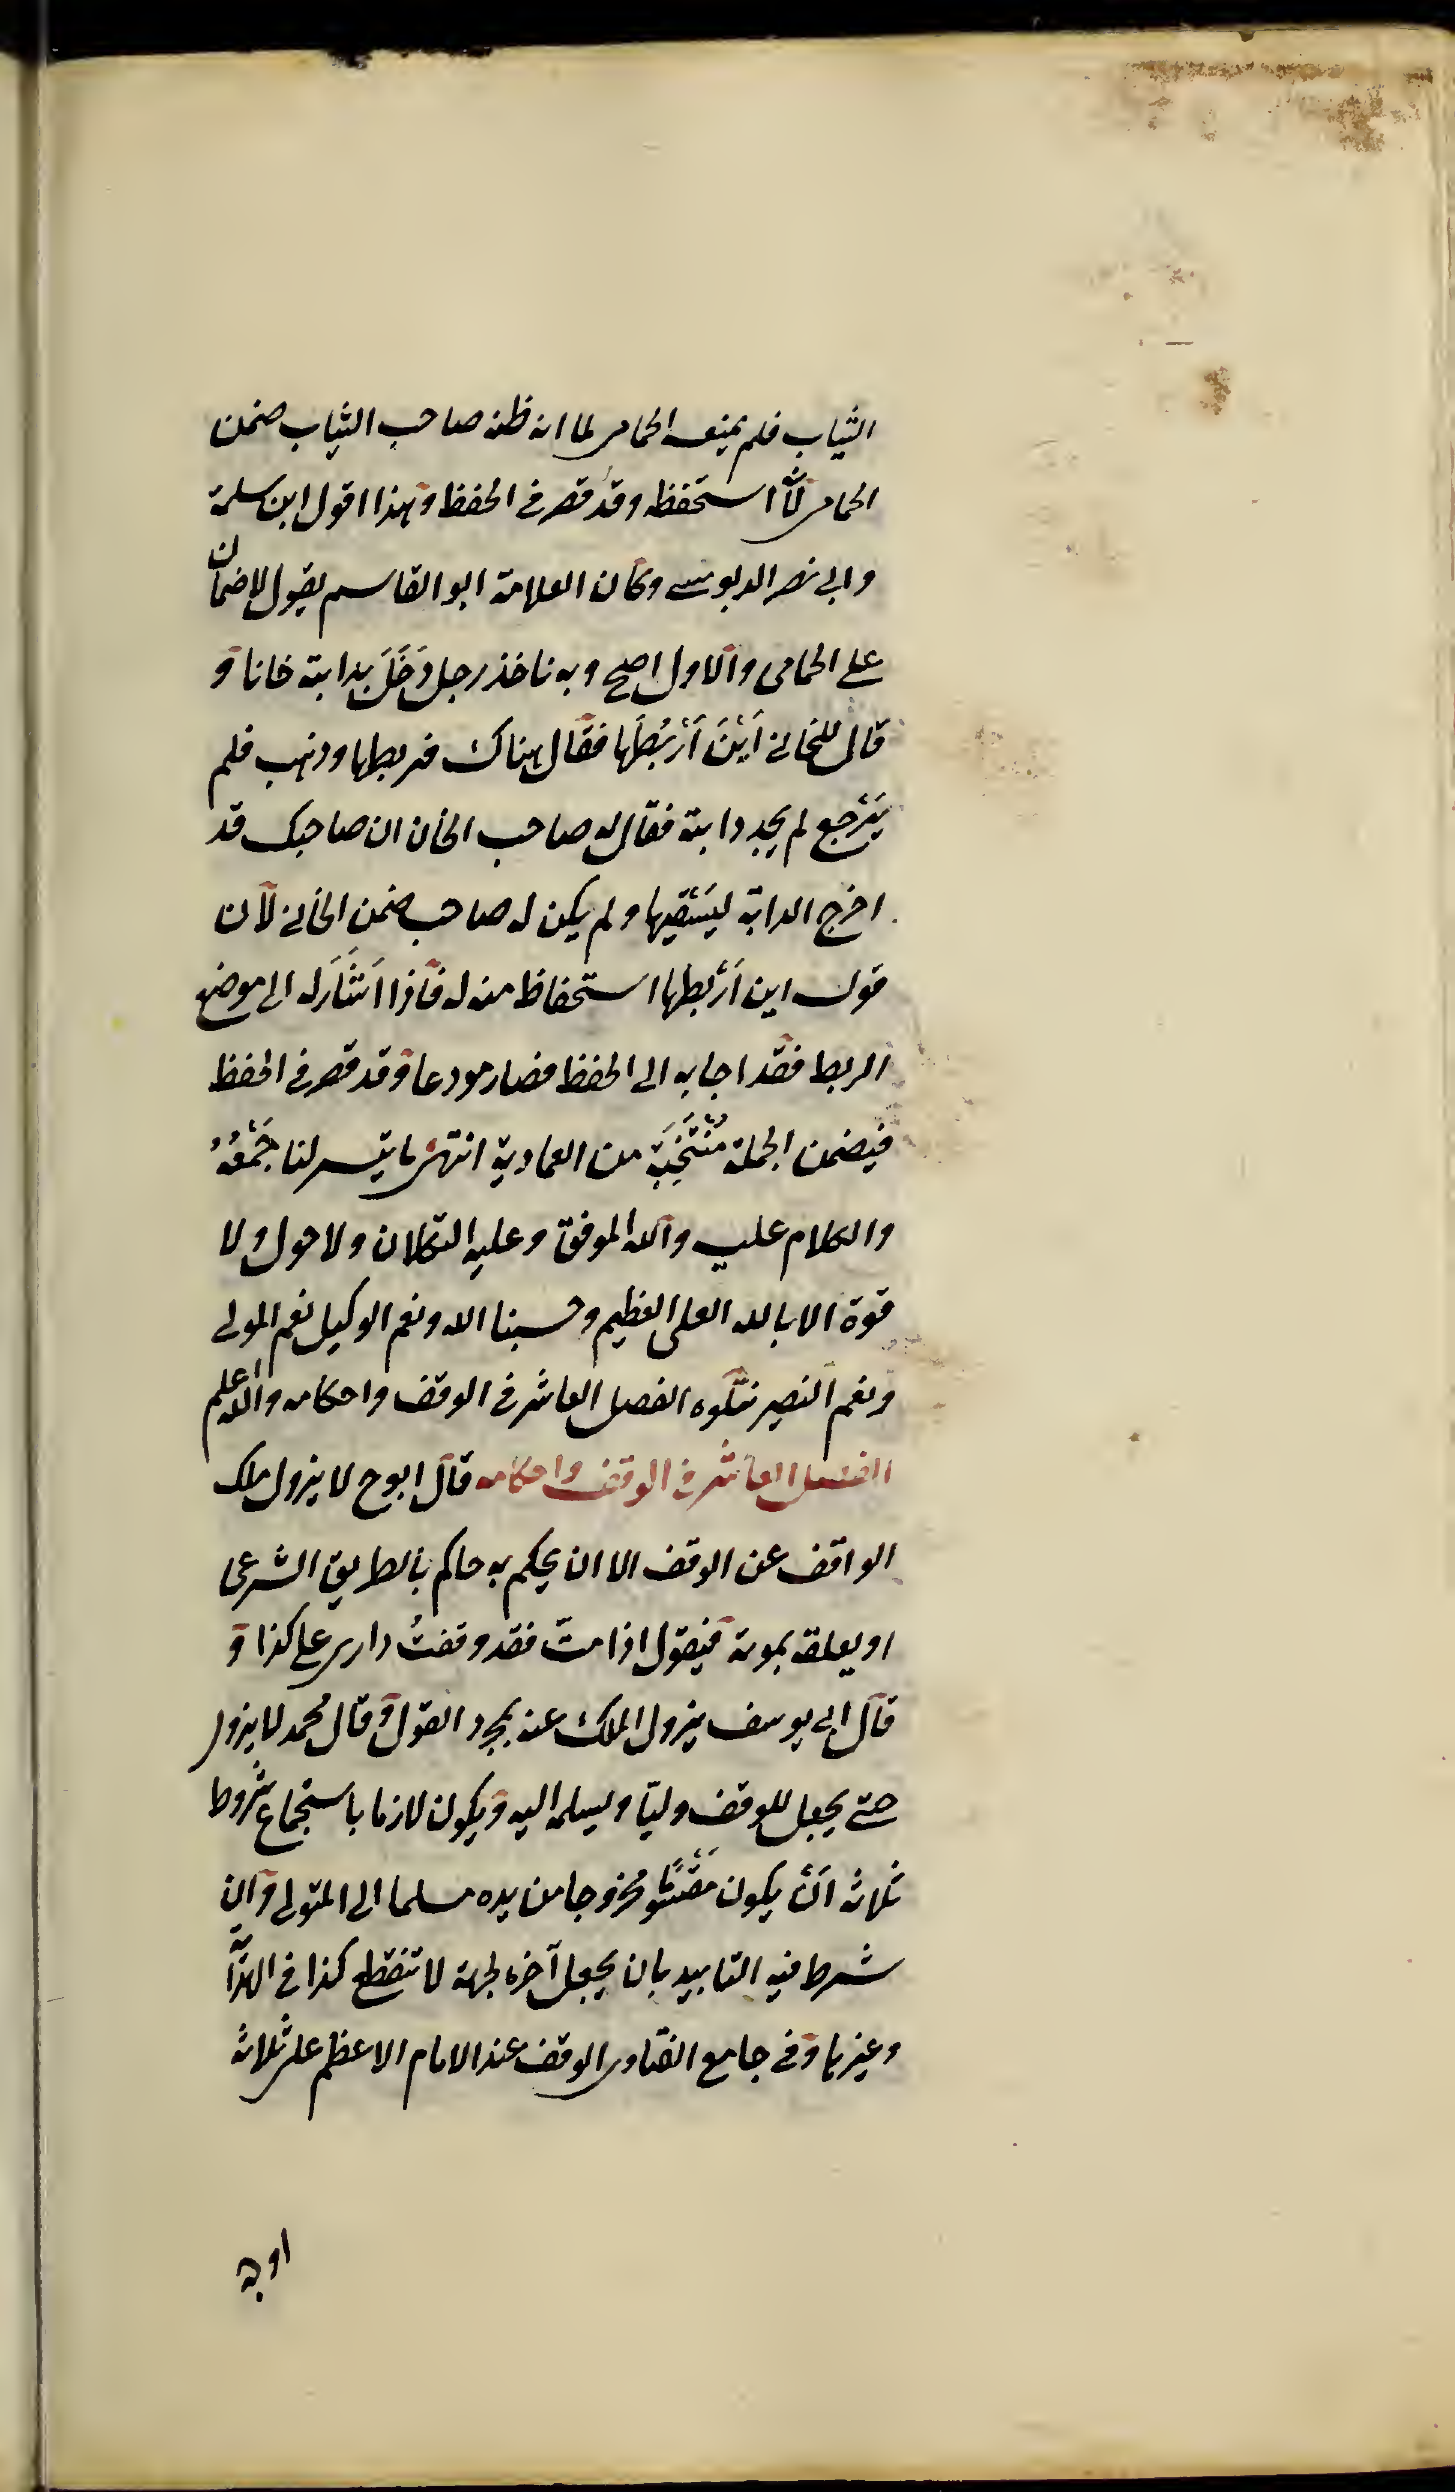 الثياب فلم يمنعه الحامى لما انه ظنه صاحب الثياب ضمن
الحامى لانه استحفظه وقد قصر فى الحفظ وهذا اقول ابن سلمة
وابى نصر الدبوسى وكان العلامة ابو القاسم يقول لا ضمان
على الحامى والاول اصح وبه ناخذ رجل دَخَلَ بدابته خانا و
قال للخانى اَيْنَ اَرْبُطَهَا فقال هناك فربطها وذهب فلم
يَرْجع لم يجد دابته فقال له صاحب الخان ان صاحبك قد
اخرج الدابة ليَسْقيها ولم يكن له صاحب ضمن الخانى لان
قوله اين اَرْبطها استحفاظ منه له فاذا اَشَارَ له الى موضع
الربط فقد اجابه الى الحفظ فصار مودعا وقد قصر فى الحفظ
فيضمن الجملة مُنْتَخَبَة من العمادية انتهى ما تيسر لنا جَمْعُهُ
والكلام عليه والله الموفق وعليه التكلان ولا حول ولا
قوة الا بالله العلى العظيم وحسبنا الله ونعم الوكيل نعم المولى
ونعم النصير نتلوه الفصل العاشر فى الوقف واحكامه والله اعلم
الفصل العاشر فى الوقف واحكامه قال ابوح لا يزول ملك
الواقف عن الوقف الا ان يحكم به حاكم بالطريق الشرعى
او يعلقه بموته فيقول اذا متّ فقد وقفتُ دارى على كذا و
قال ابى يوسف يزول الملك عنه بمجرد القول وقال محمد لا يزول
حتى يجعل للوقف وليّا ويسلمه اليه ويكون لازما باستجماع شروط
ثلاثه اَنْ يكون مخروجا من يده مسلما الى المتولى وان
شرط فيه التابيد بان يجعل آخره لجهة لا تنقطع كذا فى الهدا
وغيرها وفى جامع الفتاوى الوقف عند الامام الاعظم على ثلاثه
اوجه